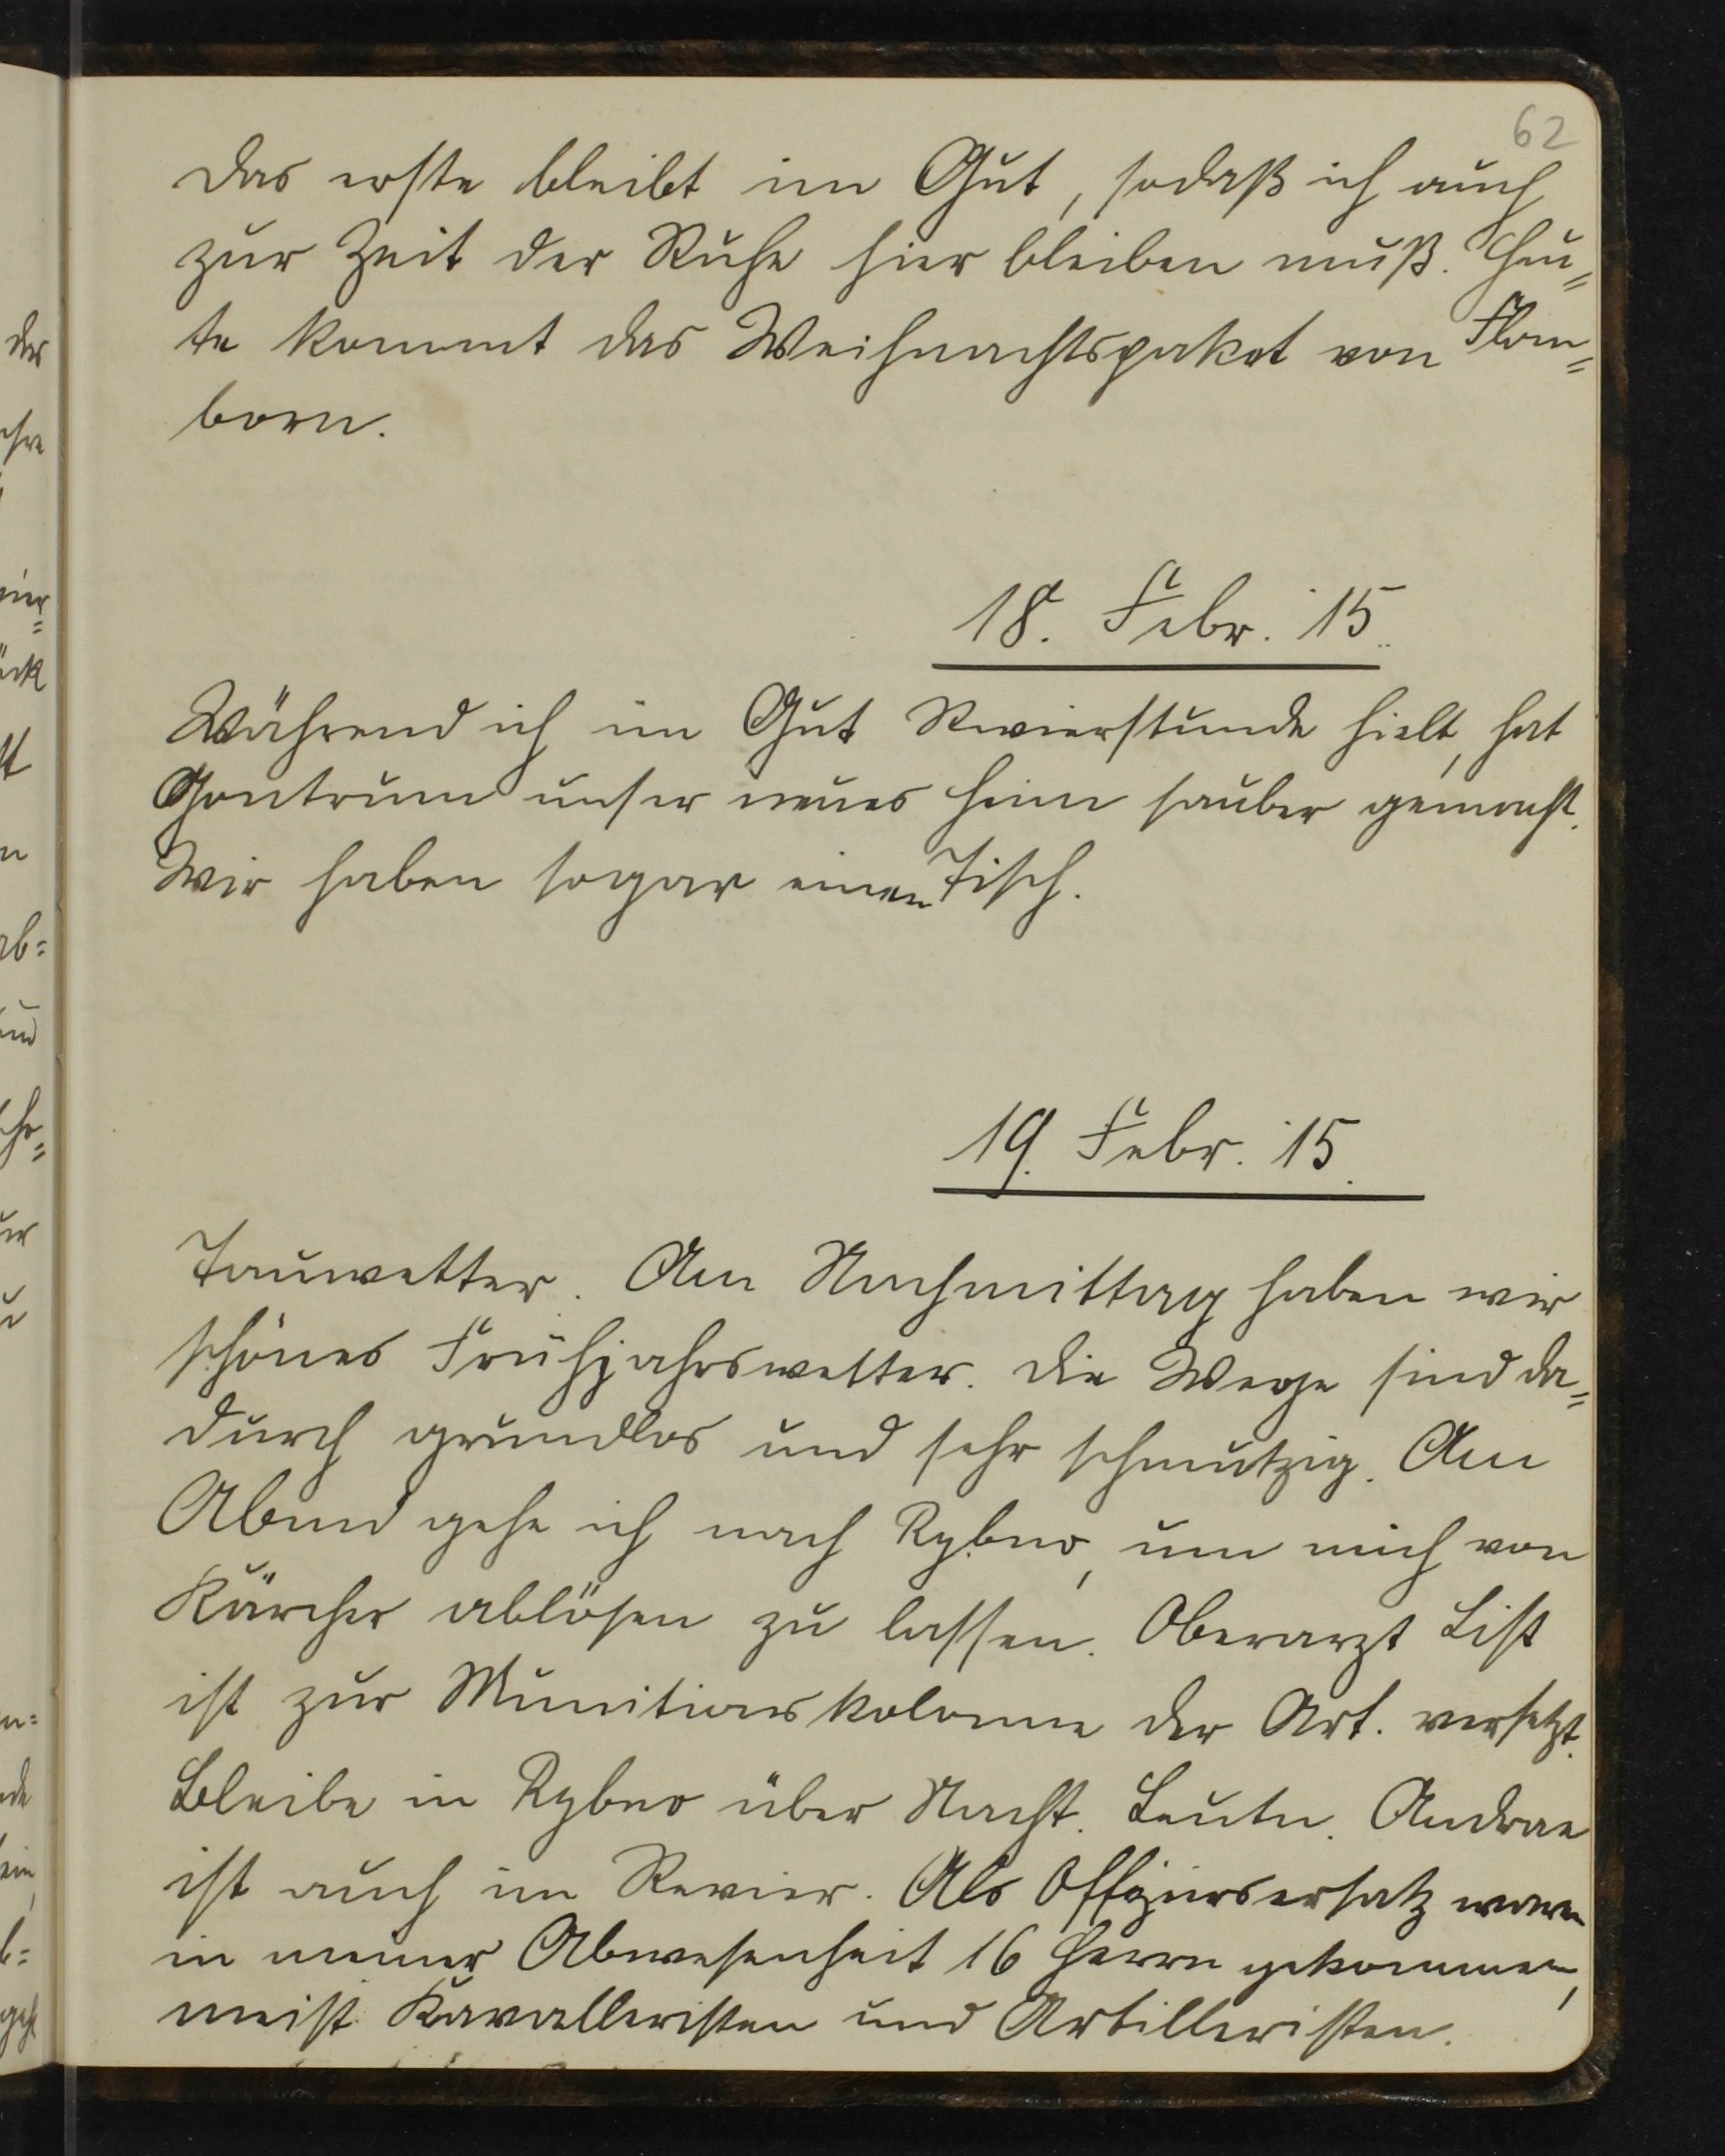 62
das erste bleibt im Gut, sodaß ich auch
zur Zeit der Ruhe hier bleiben muß. Heu=
te kommt das Weihnachtspaket von Flom=
born.
18. Febr. 15.
Während ich im Gut Revierstunde hielt, hat
Gontrum unser neues Heim sauber gemacht.
Wir haben sogar einen Tisch.
19. Febr. 15.
Tauwetter. Am Nachmittag haben wir
schönes Frühjahrswetter. Die Wege sind da=
durch grundlos und sehr schmutzig. Am
Abend gehe ich nach Rybno, um mich von
Kärcher ablösen zu lassen. Oberarzt List
ist zur Munitionskolonne der Art. versetzt.
Bleibe in Rybno über Nacht. Leutn. Andrae
ist auch im Revier. Als Offiziersersatz waren
in meiner Abwesenheit 16 Herrn gekommen,
meist Kavalleristen und Artilleristen.